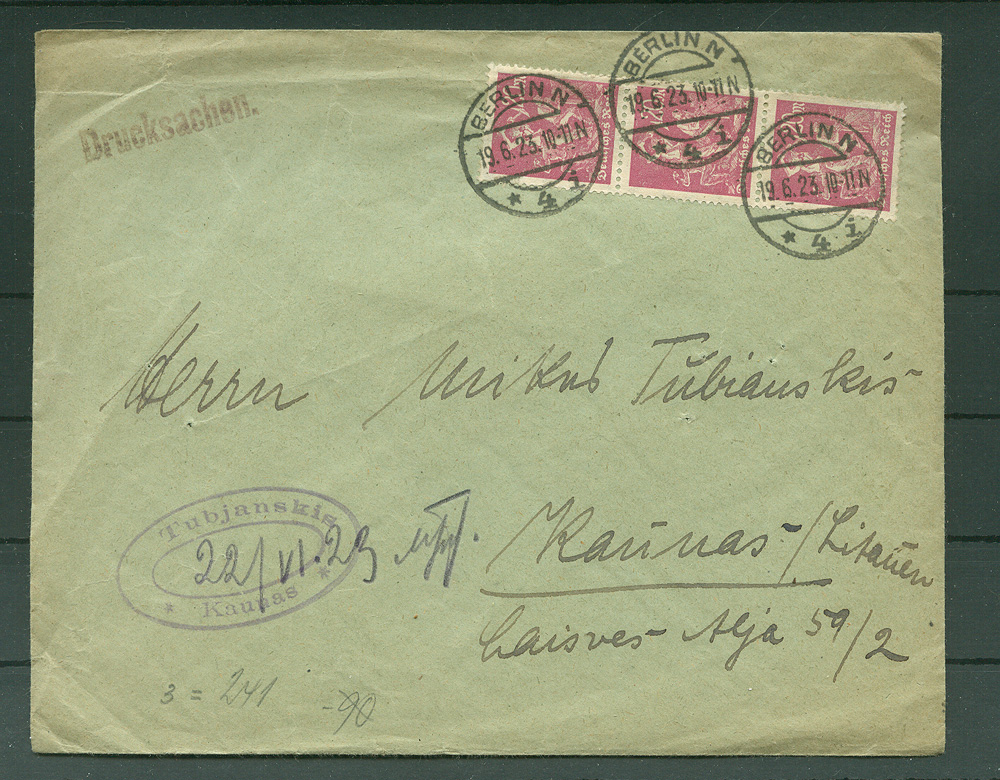 Drucksachen.
BERLIN N
19.6.23.10-11N
* 4 i
BERLIN N
19.6.23.10-11N
* 4 i
BERLIN N
19.6.23.10-11N
* 4 i
Deutsches Reich
Deutsches Reich
Deutsches Reich
Herrn Mikus Tubianskis
Kaunas / Litauen
Laisves Alja 59/2
Tubjanskis
22/VI.23
* Kaunas *
3 = 241
-90